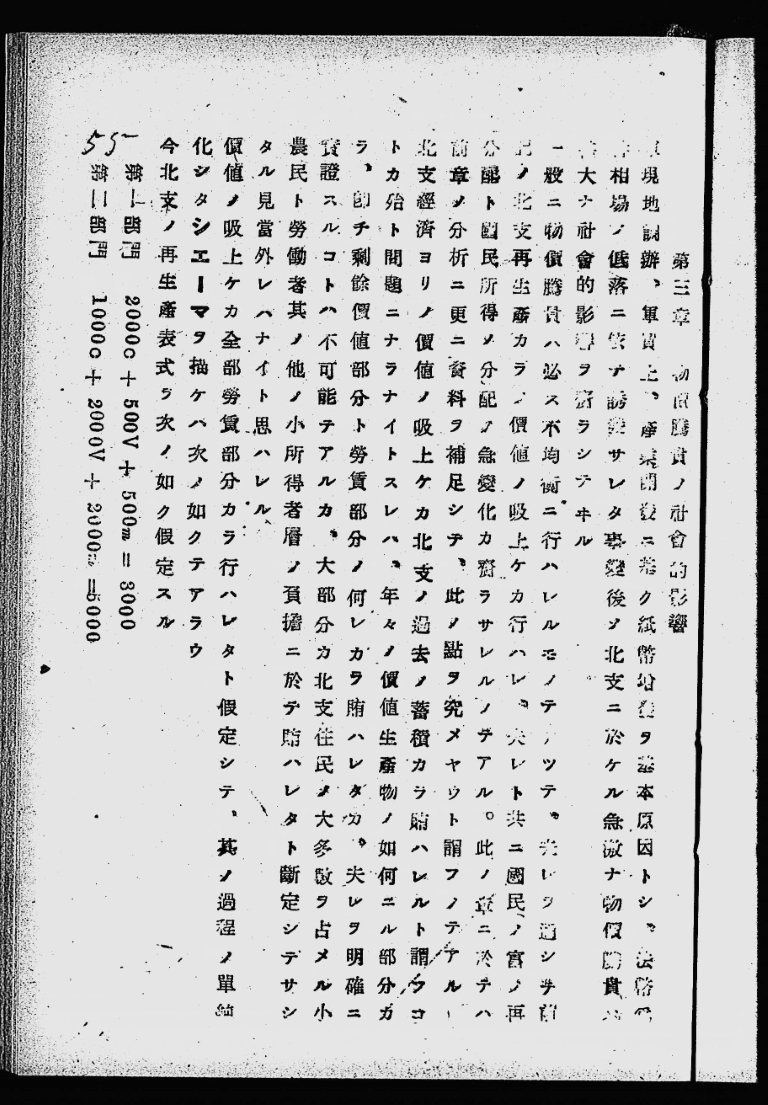 第三章 物價騰貴ノ社會的影響
現地調辦、軍費上、産業開發ニ基ク紙幣増發ヲ基本原因トシ、法幣
相場ノ低落ニ依テ誘發サレタ事變後ノ北支ニ於ケル急激ナ物價騰貴ハ
大ナ社會的影響ヲ齎ラシテヰル
一般ニ物價騰貴ハ必ス不均衡ニ行ハレルモノテアツテ、夫レヲ通シテ前
記ノ北支再生産カラノ價値ノ吸上ケカ行ハレ、夫レト共ニ國民ノ富ノ再
分配ト國民所得ノ分配ノ急變化カ齎ラサレルノテアル。此ノ章ニ於テハ
前章ノ分析ニ更ニ資料ヲ補足シテ、此ノ點ヲ究メヤウト謂フノテアル
北支經濟ヨリノ價値ノ吸上ケカ北支ノ過去ノ蓄積カラ賄ハレルト謂フコ
トカ殆ト問題ニナラナイトスレハ、年々ノ價値生産物ノ如何ニル部分カ
ラ、卽チ剩餘價値部分ト勞賃部分ノ何レカラ賄ハレタカ。夫レヲ明確ニ
實證スルコトハ不可能テアルカ、大部分カ北支住民ノ大多數ヲ占メル小
農民ト勞働者其ノ他ノ小所得者層ノ負擔ニ於テ賄ハレタト斷定シテサシ
タル見當外レハナイト思ハレル
價値ノ吸上ケカ全部勞賃部分カラ行ハレタト假定シテ、其ノ過程ノ單純
化シタシエーマヲ描ケハ次ノ如クテアラウ
今北支ノ再生産表式ヲ次ノ如ク假定スル
第一部門 2000c + 500V + 500m = 3000
第二部門 1000c + 2000V + 2000m = 5000
55